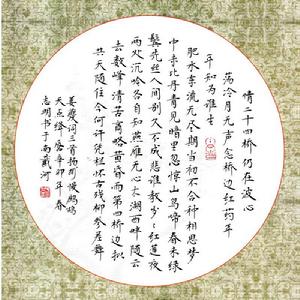 情二十四桥仍在波心
荡冷月无声念桥边红药年
年知为谁生
肥水东流无尽期当初不合种相思梦
中未比丹青见暗里忽惊山鸟啼春未绿
鬓先丝人间别久不成悲谁教岁岁红莲夜
两处沉吟各自知燕雁无心太湖西畔随云
去数峰清苦商略黄昏雨第四桥边拟
共天随住今何许凭栏怀古残柳参差舞
姜夔词三首扬州慢鹧鸪
天点绛唇辛卯年春
志明书于南戴河